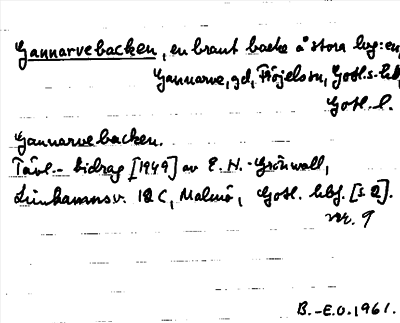 Gannarvebacken, en brant backe å stora lvg:en,
Gannarve, gd, Fröjels sn, Gotl. s. hd,
Gotl. l.
Gannarvebacken.
Tävl.- bidrag [1949] av E. H. Grönwall,
Limhamnsv. 12 C, Malmö, Gotl. hbf. [s 2].
nr. 9
B.-E.O. 1961.